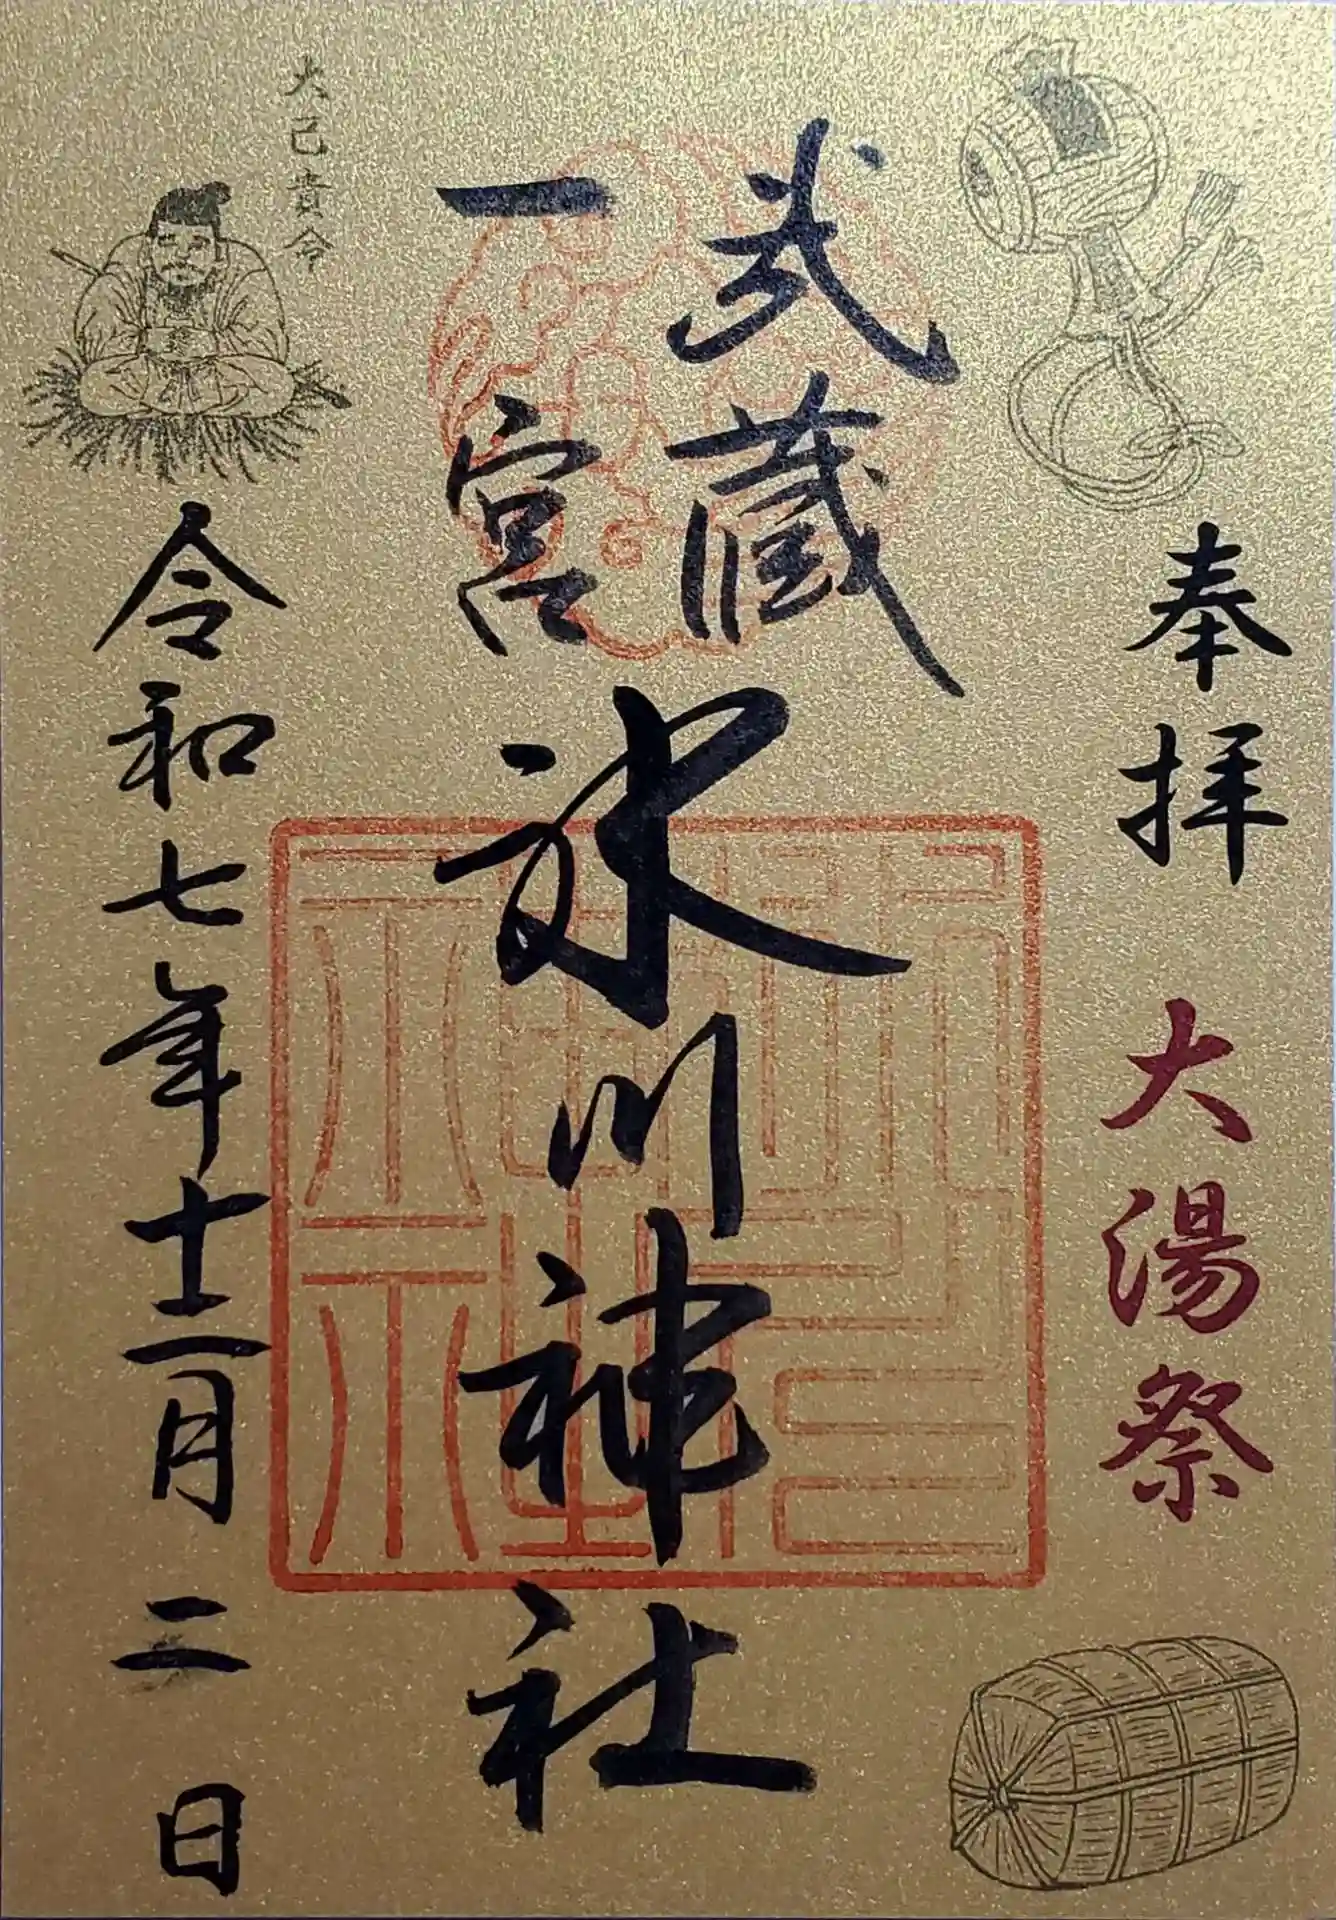 奉拝 大湯祭
武蔵
一宮
氷川神社
大己貴命
令和七年十二月二日